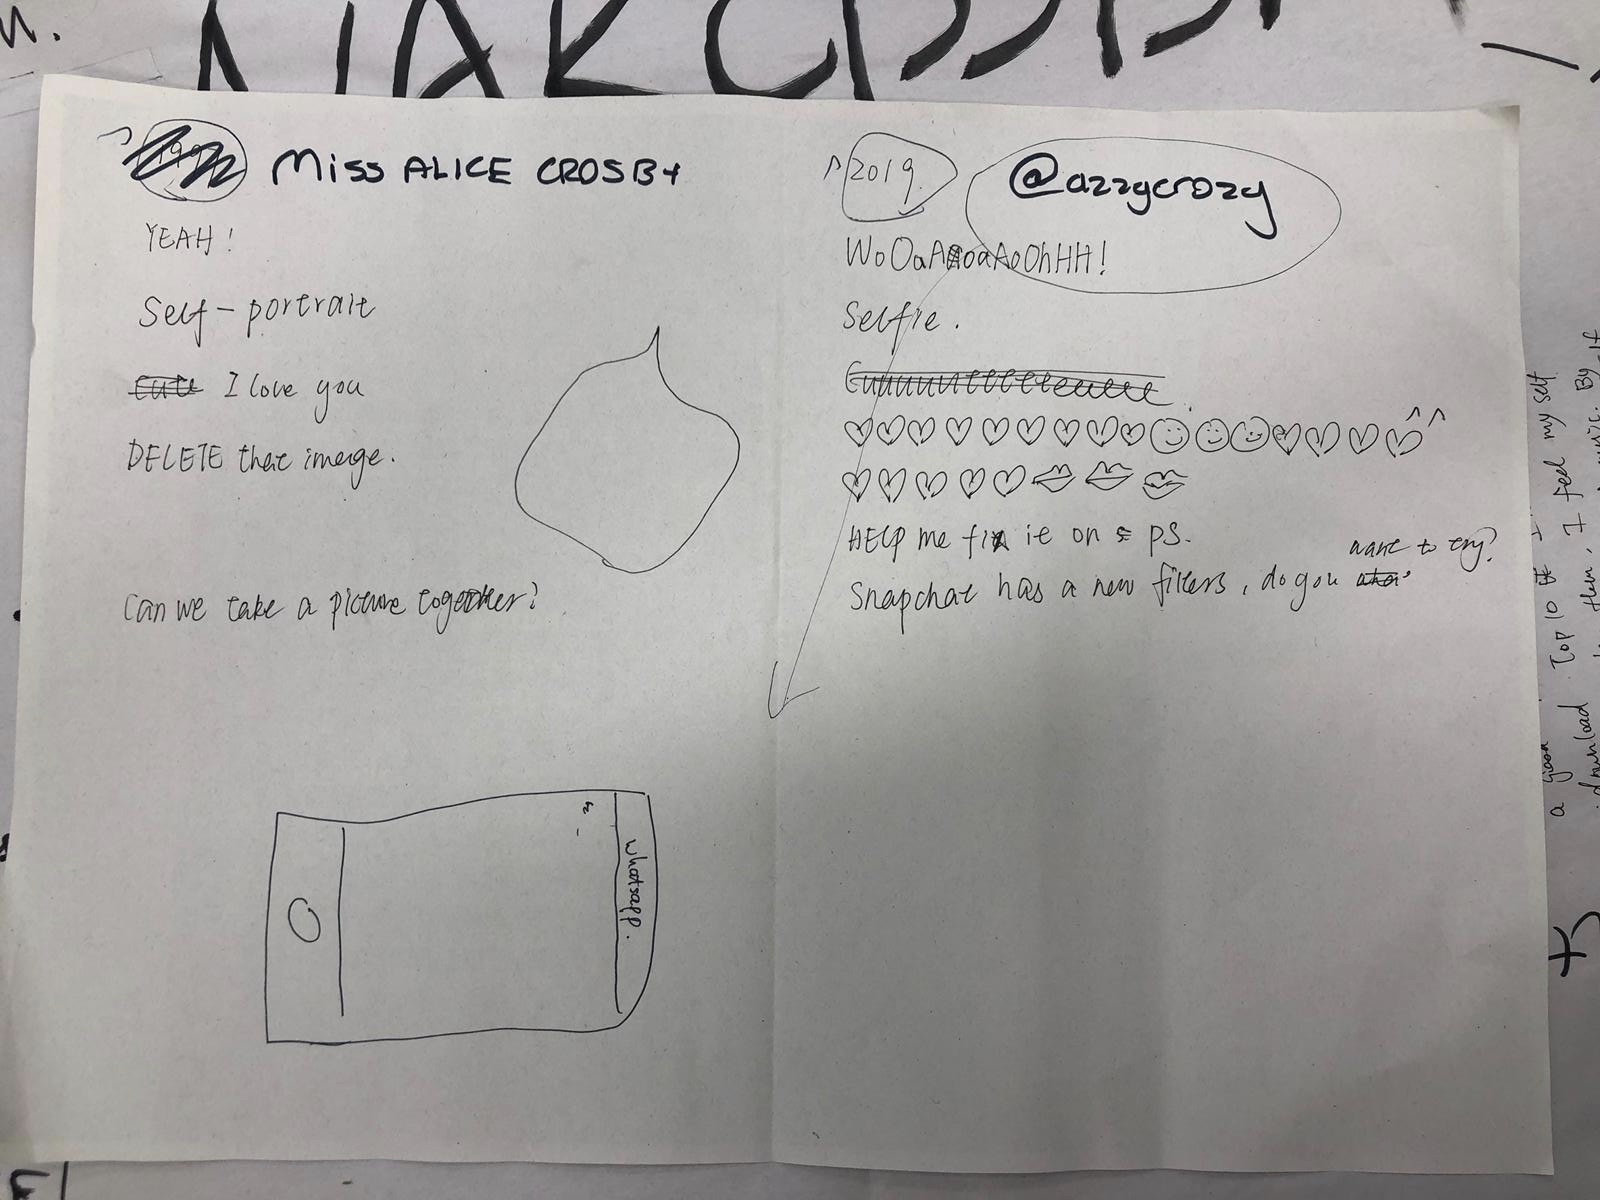 MISS ALICE CROSBY
YEAH!
Self-portrait
Cute I love you
DELETE that image.
Can we take a picture together?
whatsapp.
2019
@azzycrozy
WoOaAoaAoOhHH!
Selfie.
♡♡♡♡♡♡♡♡♡☺☺☺♡♡♡♡^^
♡♡♡♡♡
HELP me fix it on PS.
want to try?
Snapchat has a new filters, do you
a good
Top 10
I feel my self
download
then,
music. By